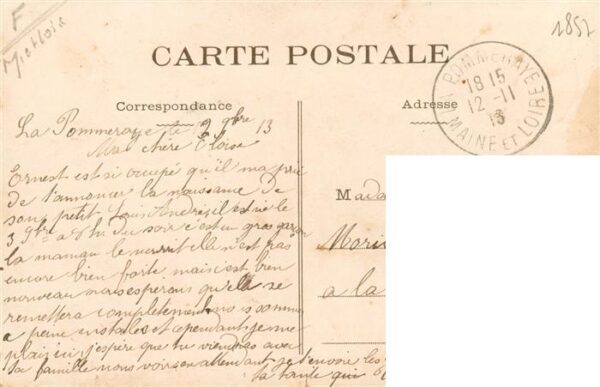 F
Mietlois
1857
CARTE POSTALE
Correspondance
Adresse
LA POMMERAYE
18 15
12 - 11
13
MAINE ET LOIRE
La Pommeraye le 12 9bre 13
Ma chère Eloïse
Ernest est si occupé qu'il m'a prié
de t'annoncer la naissance de
son petit Louis André il est né le
3 9bre a 8 h du soir c'est un gros garçon
la maman le nourrit elle n'est pas
encore bien forte mais c'est bien
nouveau nous esperons qu'elle se
remettera completement nous sommes
a peine instales et cependant je me
plais ici j'espère que tu viendras avec
ta famille nous voir en attendant je t'envoie les
ta tante qui
Mada
Moris
a la